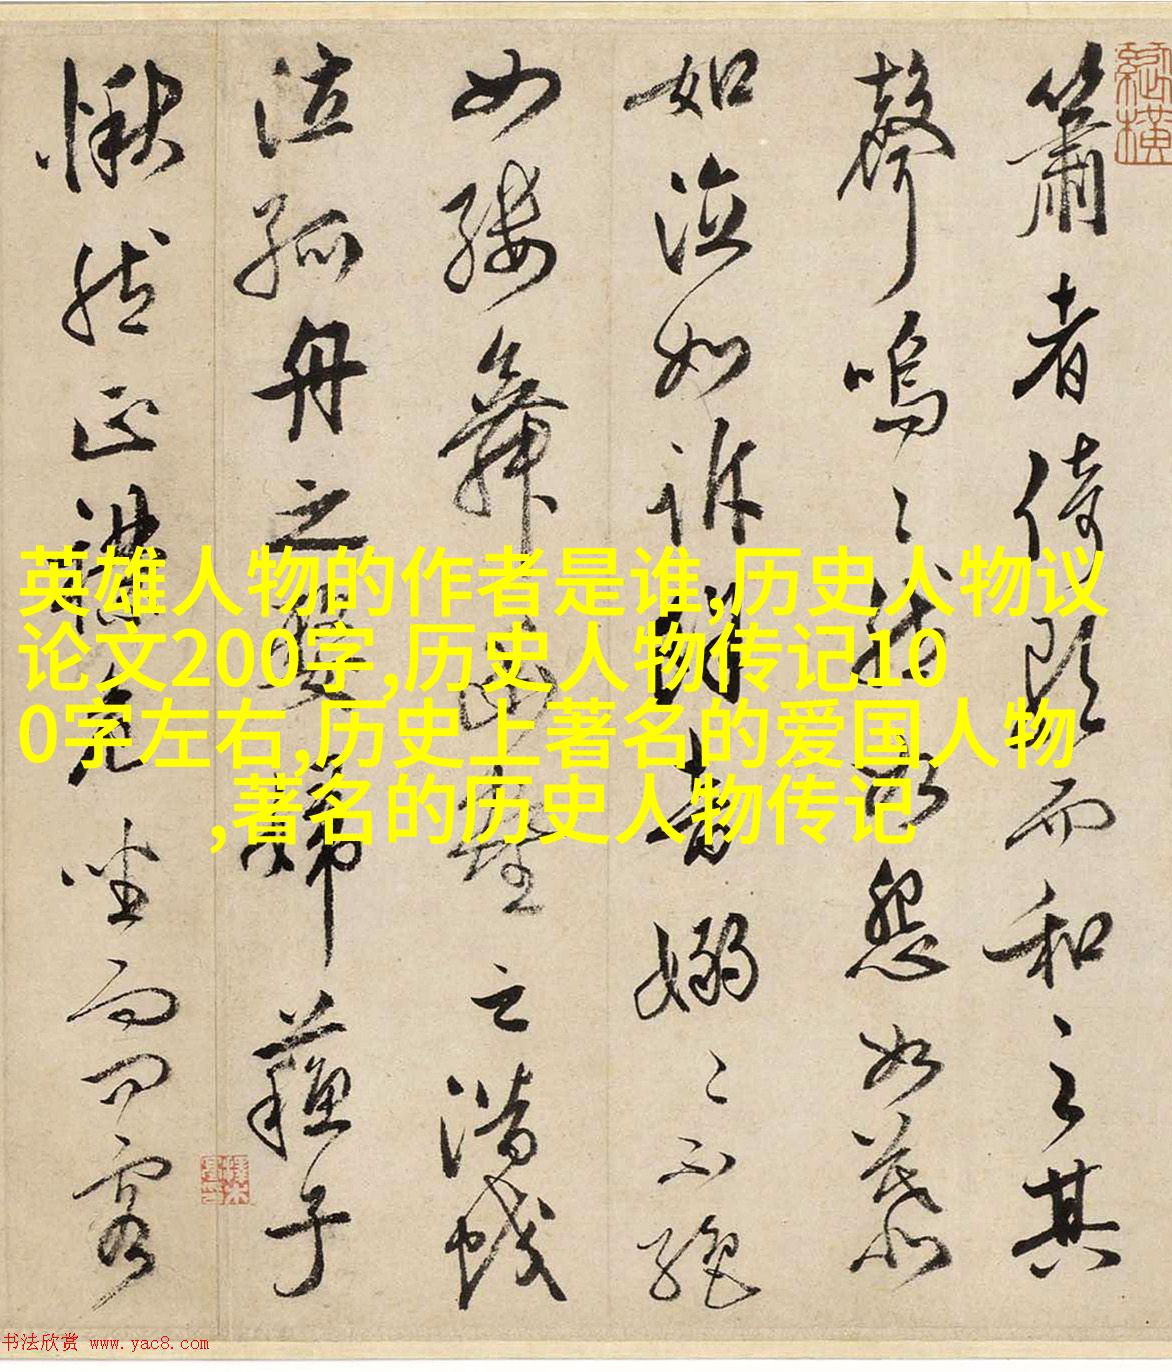 簫者倚歌而和之其
聲嗚〻然如怨如慕
如泣如訴餘音嫋〻不絕
如縷舞幽壑之潛蛟
泣孤舟之嫠婦蘇子
愀然正襟危坐而問客
英雄人物的作者是谁,历史人物议
论文200字,历史人物传记10
0字左右,历史上著名的爱国人物
,著名的历史人物传记
书法欣赏 www.yac8.com